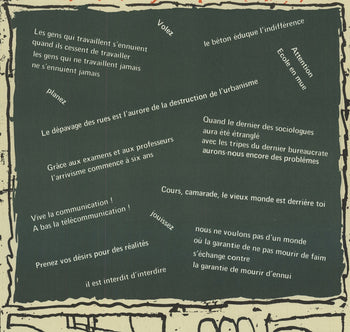 Les gens qui travaillent s'ennuient
quand ils cessent de travailler
les gens qui ne travaillent jamais
ne s'ennuient jamais
Volez
le béton éduque l'indifférence
Attention
Ecole en mue
planez
Le dépavage des rues est l'aurore de la destruction de l'urbanisme
Quand le dernier des sociologues
aura été étranglé
avec les tripes du dernier bureaucrate
aurons-nous encore des problèmes
Grâce aux examens et aux professeurs
l'arrivisme commence à six ans
Cours, camarade, le vieux monde est derrière toi
Vive la communication !
A bas la télécommunication !
jouissez
nous ne voulons pas d'un monde
où la garantie de ne pas mourir de faim
s'échange contre
la garantie de mourir d'ennui
Prenez vos désirs pour des réalités
il est interdit d'interdire